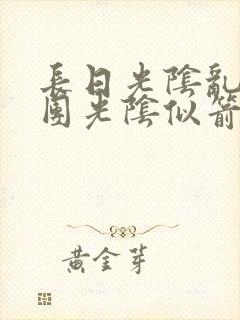 長日光陰亂
團光陰似箭
黃金芽